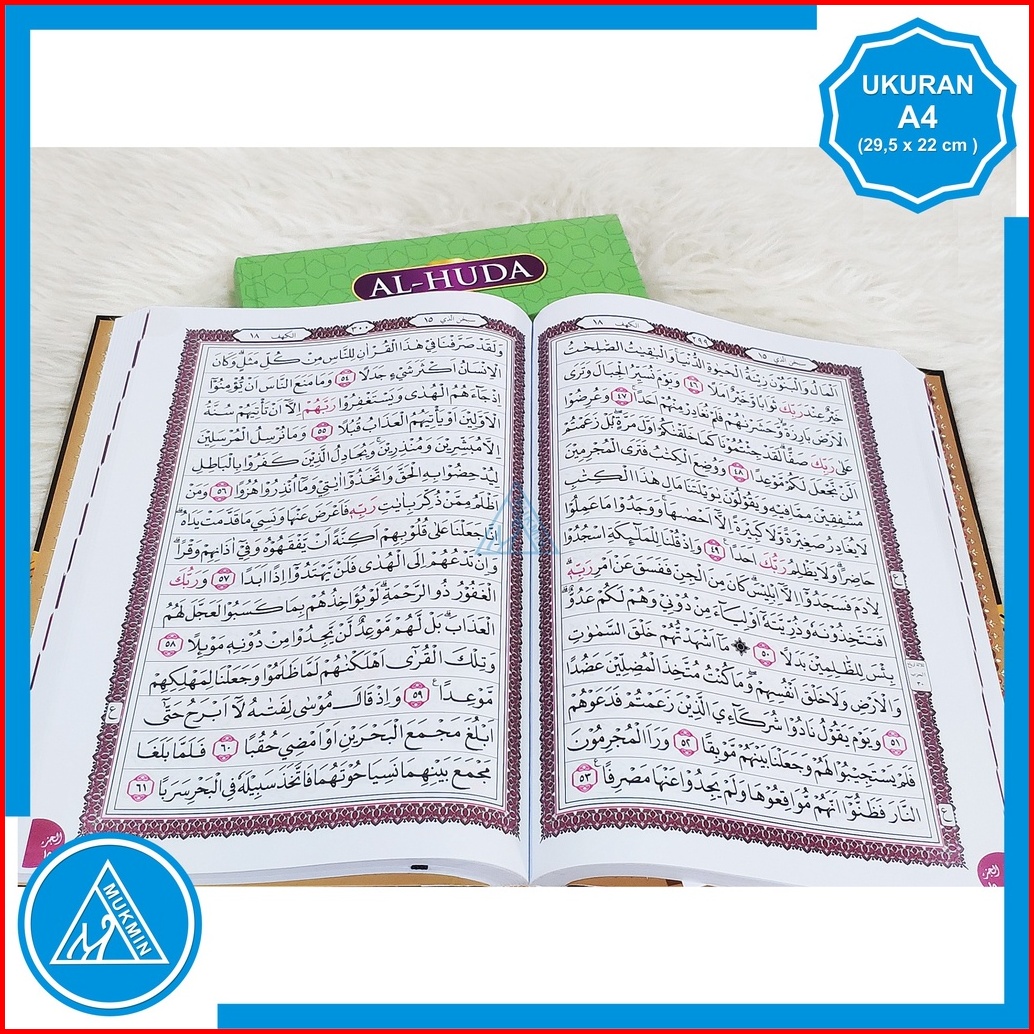 UKURAN
A4
(29,5 x 22 cm )
AL-HUDA
سبحن الذي ١٥ ٢٩٩ الكهف ١٨
اَلْمَالُ وَالْبَنُوْنَ زِيْنَةُ الْحَيٰوةِ الدُّنْيَاۚ وَالْبٰقِيٰتُ الصّٰلِحٰتُ
خَيْرٌ عِنْدَ رَبِّكَ ثَوَابًا وَّخَيْرٌ اَمَلًا ٤٦ وَيَوْمَ نُسَيِّرُ الْجِبَالَ وَتَرَى
الْاَرْضَ بَارِزَةًۙ وَّحَشَرْنٰهُمْ فَلَمْ نُغَادِرْ مِنْهُمْ اَحَدًاۚ ٤٧ وَعُرِضُوْا
عَلٰى رَبِّكَ صَفًّاۗ لَقَدْ جِئْتُمُوْنَا كَمَا خَلَقْنٰكُمْ اَوَّلَ مَرَّةٍۢ بَلْ زَعَمْتُمْ
اَلَّنْ نَّجْعَلَ لَكُمْ مَّوْعِدًا ٤٨ وَوُضِعَ الْكِتٰبُ فَتَرَى الْمُجْرِمِيْنَ
مُشْفِقِيْنَ مِمَّا فِيْهِ وَيَقُوْلُوْنَ يٰوَيْلَتَنَا مَالِ هٰذَا الْكِتٰبِ
لَا يُغَادِرُ صَغِيْرَةً وَّلَا كَبِيْرَةً اِلَّآ اَحْصٰىهَاۚ وَوَجَدُوْا مَا عَمِلُوْا
حَاضِرًاۗ وَلَا يَظْلِمُ رَبُّكَ اَحَدًا ٤٩ وَاِذْ قُلْنَا لِلْمَلٰۤىِٕكَةِ اسْجُدُوْا
لِاٰدَمَ فَسَجَدُوْٓا اِلَّآ اِبْلِيْسَۗ كَانَ مِنَ الْجِنِّ فَفَسَقَ عَنْ اَمْرِ رَبِّهٖۗ
اَفَتَتَّخِذُوْنَهٗ وَذُرِّيَّتَهٗٓ اَوْلِيَاۤءَ مِنْ دُوْنِيْ وَهُمْ لَكُمْ عَدُوٌّۗ
بِئْسَ لِلظّٰلِمِيْنَ بَدَلًا ٥٠ مَآ اَشْهَدْتُّهُمْ خَلْقَ السَّمٰوٰتِ
وَالْاَرْضِ وَلَا خَلْقَ اَنْفُسِهِمْۖ وَمَا كُنْتُ مُتَّخِذَ الْمُضِلِّيْنَ عَضُدًا
٥١ وَيَوْمَ يَقُوْلُ نَادُوْا شُرَكَاۤءِيَ الَّذِيْنَ زَعَمْتُمْ فَدَعَوْهُمْ
فَلَمْ يَسْتَجِيْبُوْا لَهُمْ وَجَعَلْنَا بَيْنَهُمْ مَّوْبِقًا ٥٢ وَرَاَ الْمُجْرِمُوْنَ
النَّارَ فَظَنُّوْٓا اَنَّهُمْ مُّوَاقِعُوْهَا وَلَمْ يَجِدُوْا عَنْهَا مَصْرِفًا ٥٣
سبحن الذي ١٥ ٣٠٠ الكهف ١٨
وَلَقَدْ صَرَّفْنَا فِيْ هٰذَا الْقُرْاٰنِ لِلنَّاسِ مِنْ كُلِّ مَثَلٍۗ وَكَانَ
الْاِنْسَانُ اَكْثَرَ شَيْءٍ جَدَلًا ٥٤ وَمَا مَنَعَ النَّاسَ اَنْ يُّؤْمِنُوْٓا
اِذْ جَاۤءَهُمُ الْهُدٰى وَيَسْتَغْفِرُوْا رَبَّهُمْ اِلَّآ اَنْ تَأْتِيَهُمْ سُنَّةُ
الْاَوَّلِيْنَ اَوْ يَأْتِيَهُمُ الْعَذَابُ قُبُلًا ٥٥ وَمَا نُرْسِلُ الْمُرْسَلِيْنَ
اِلَّا مُبَشِّرِيْنَ وَمُنْذِرِيْنَۚ وَيُجَادِلُ الَّذِيْنَ كَفَرُوْا بِالْبَاطِلِ
لِيُدْحِضُوْا بِهِ الْحَقَّ وَاتَّخَذُوْٓا اٰيٰتِيْ وَمَآ اُنْذِرُوْا هُزُوًا ٥٦ وَمَنْ
اَظْلَمُ مِمَّنْ ذُكِّرَ بِاٰيٰتِ رَبِّهٖ فَاَعْرَضَ عَنْهَا وَنَسِيَ مَا قَدَّمَتْ يَدَاهُۗ
اِنَّا جَعَلْنَا عَلٰى قُلُوْبِهِمْ اَكِنَّةً اَنْ يَّفْقَهُوْهُ وَفِيْٓ اٰذَانِهِمْ وَقْرًاۗ
وَاِنْ تَدْعُهُمْ اِلَى الْهُدٰى فَلَنْ يَّهْتَدُوْٓا اِذًا اَبَدًا ٥٧ وَرَبُّكَ
الْغَفُوْرُ ذُو الرَّحْمَةِۗ لَوْ يُؤَاخِذُهُمْ بِمَا كَسَبُوْا لَعَجَّلَ لَهُمُ
الْعَذَابَۗ بَلْ لَّهُمْ مَّوْعِدٌ لَّنْ يَّجِدُوْا مِنْ دُوْنِهٖ مَوْىِٕلًا ٥٨
وَتِلْكَ الْقُرٰٓى اَهْلَكْنٰهُمْ لَمَّا ظَلَمُوْا وَجَعَلْنَا لِمَهْلِكِهِمْ
مَّوْعِدًا ٥٩ وَاِذْ قَالَ مُوْسٰى لِفَتٰىهُ لَآ اَبْرَحُ حَتّٰٓى
اَبْلُغَ مَجْمَعَ الْبَحْرَيْنِ اَوْ اَمْضِيَ حُقُبًا ٦٠ فَلَمَّا بَلَغَا
مَجْمَعَ بَيْنِهِمَا نَسِيَا حُوْتَهُمَا فَاتَّخَذَ سَبِيْلَهٗ فِى الْبَحْرِ سَرَبًا ٦١
MUKMIN